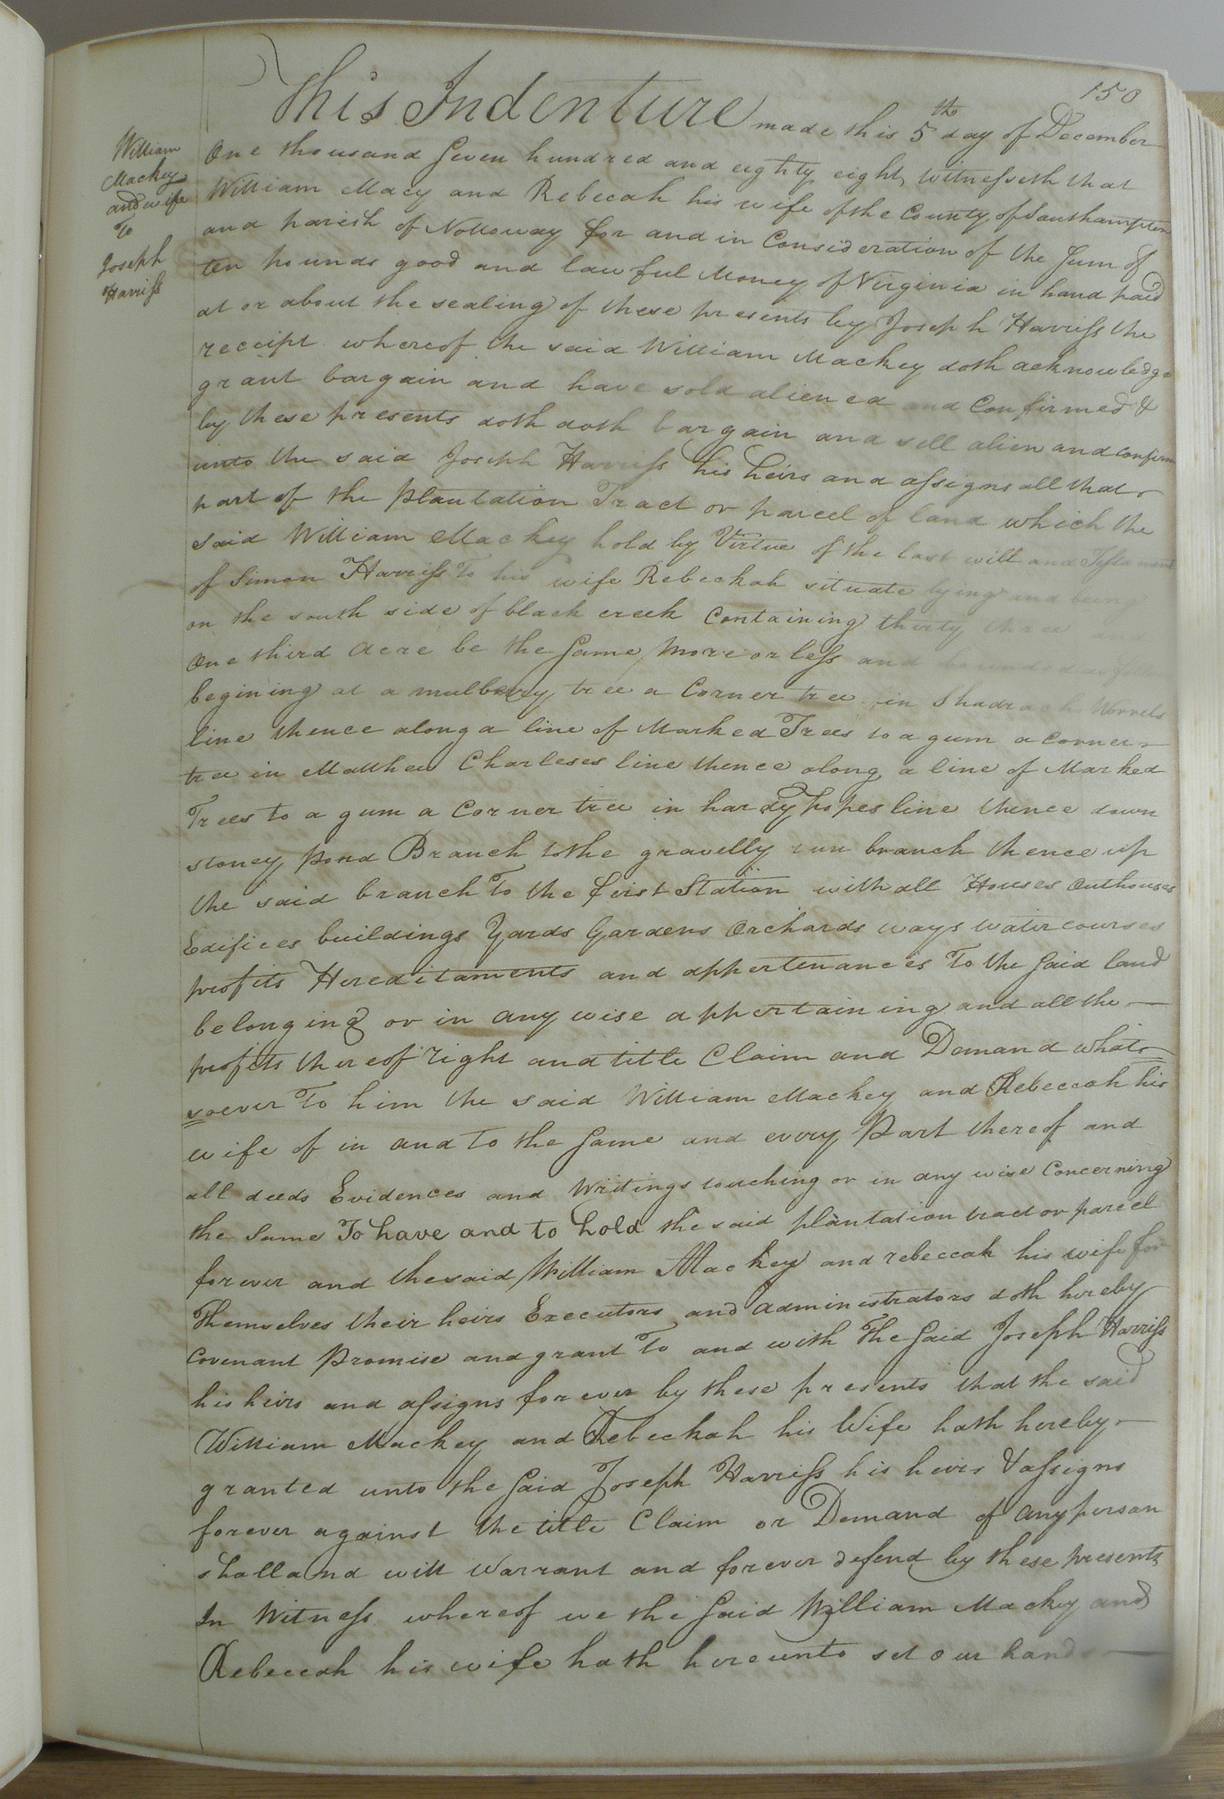 150
William
Mackey
and wife
To
Joseph
Harriss
This Indenture made this 5th day of December
One thousand Seven hundred and eightity eight, witnesseth that
William Macy and Rebecah his wife of the County of Southampton
and parish of Nottoway for and in Consideration of the Sum of
ten pounds good and lawful Money of Virginia in hand paid
at or about the sealing of these presents by Joseph Harriss the
receipt whereof the said William Mackey doth acknowledge
grant bargain and have sold aliened and Confirmed &
by these presents doth doth bargain and sell alien and confirm
unto the said Joseph Harriss his heirs and assigns all that
part of the Plantation Tract or parcel of land which the
said William Mackey hold by Virtue of the last will and Testament
of Simon Harriss To his wife Rebeckah situate lying and being
on the south side of black creek Containing thirty three and
One third Acre be the Same More or less and bounded as
begining at a mulbery tree a Corner tree in Shadrach Worrels
line thence along a line of Marked Trees to a gum a corner
tree in Matthew Charleses line thence along a line of Marked
Trees to a gum a Corner tree in hardy Popes line thence down
stoney Pond Branch to the gravelly run branch thence up
the said branch To the first Station with all Houses Outhouses
Edifices buildings Yards Gardens Orchards ways water courses
profits Hereditaments and appertenances To the Said land
belonging or in any wise appertaining and all the
profits thereof right and title Claim and Demand whats
soever To him the said William Mackey and Rebeccah his
wife of in and To the Same and every Part thereof and
all deeds Evidences and Writings touching or in any wise Concerning
the Same To have and to hold the said plantation tract or parcel
forever and the said William Mackey and rebeccah his wife for
Themselves their heirs Executors and Administrators doth hereby
Covenant Promise and grant To and with The Said Joseph Harriss
his heirs and assigns forever by these presents that the said
William Mackey and Rebeckah his Wife hath hereby
granted unto the Said Joseph Harriss his heirs & assigns
forever against the title Claim or Demand of any person
shall and will warrant and forever defend by these presents
In Witness whereof we the Said William Mackey and
Rebeccah his wife hath hereunto set our hands